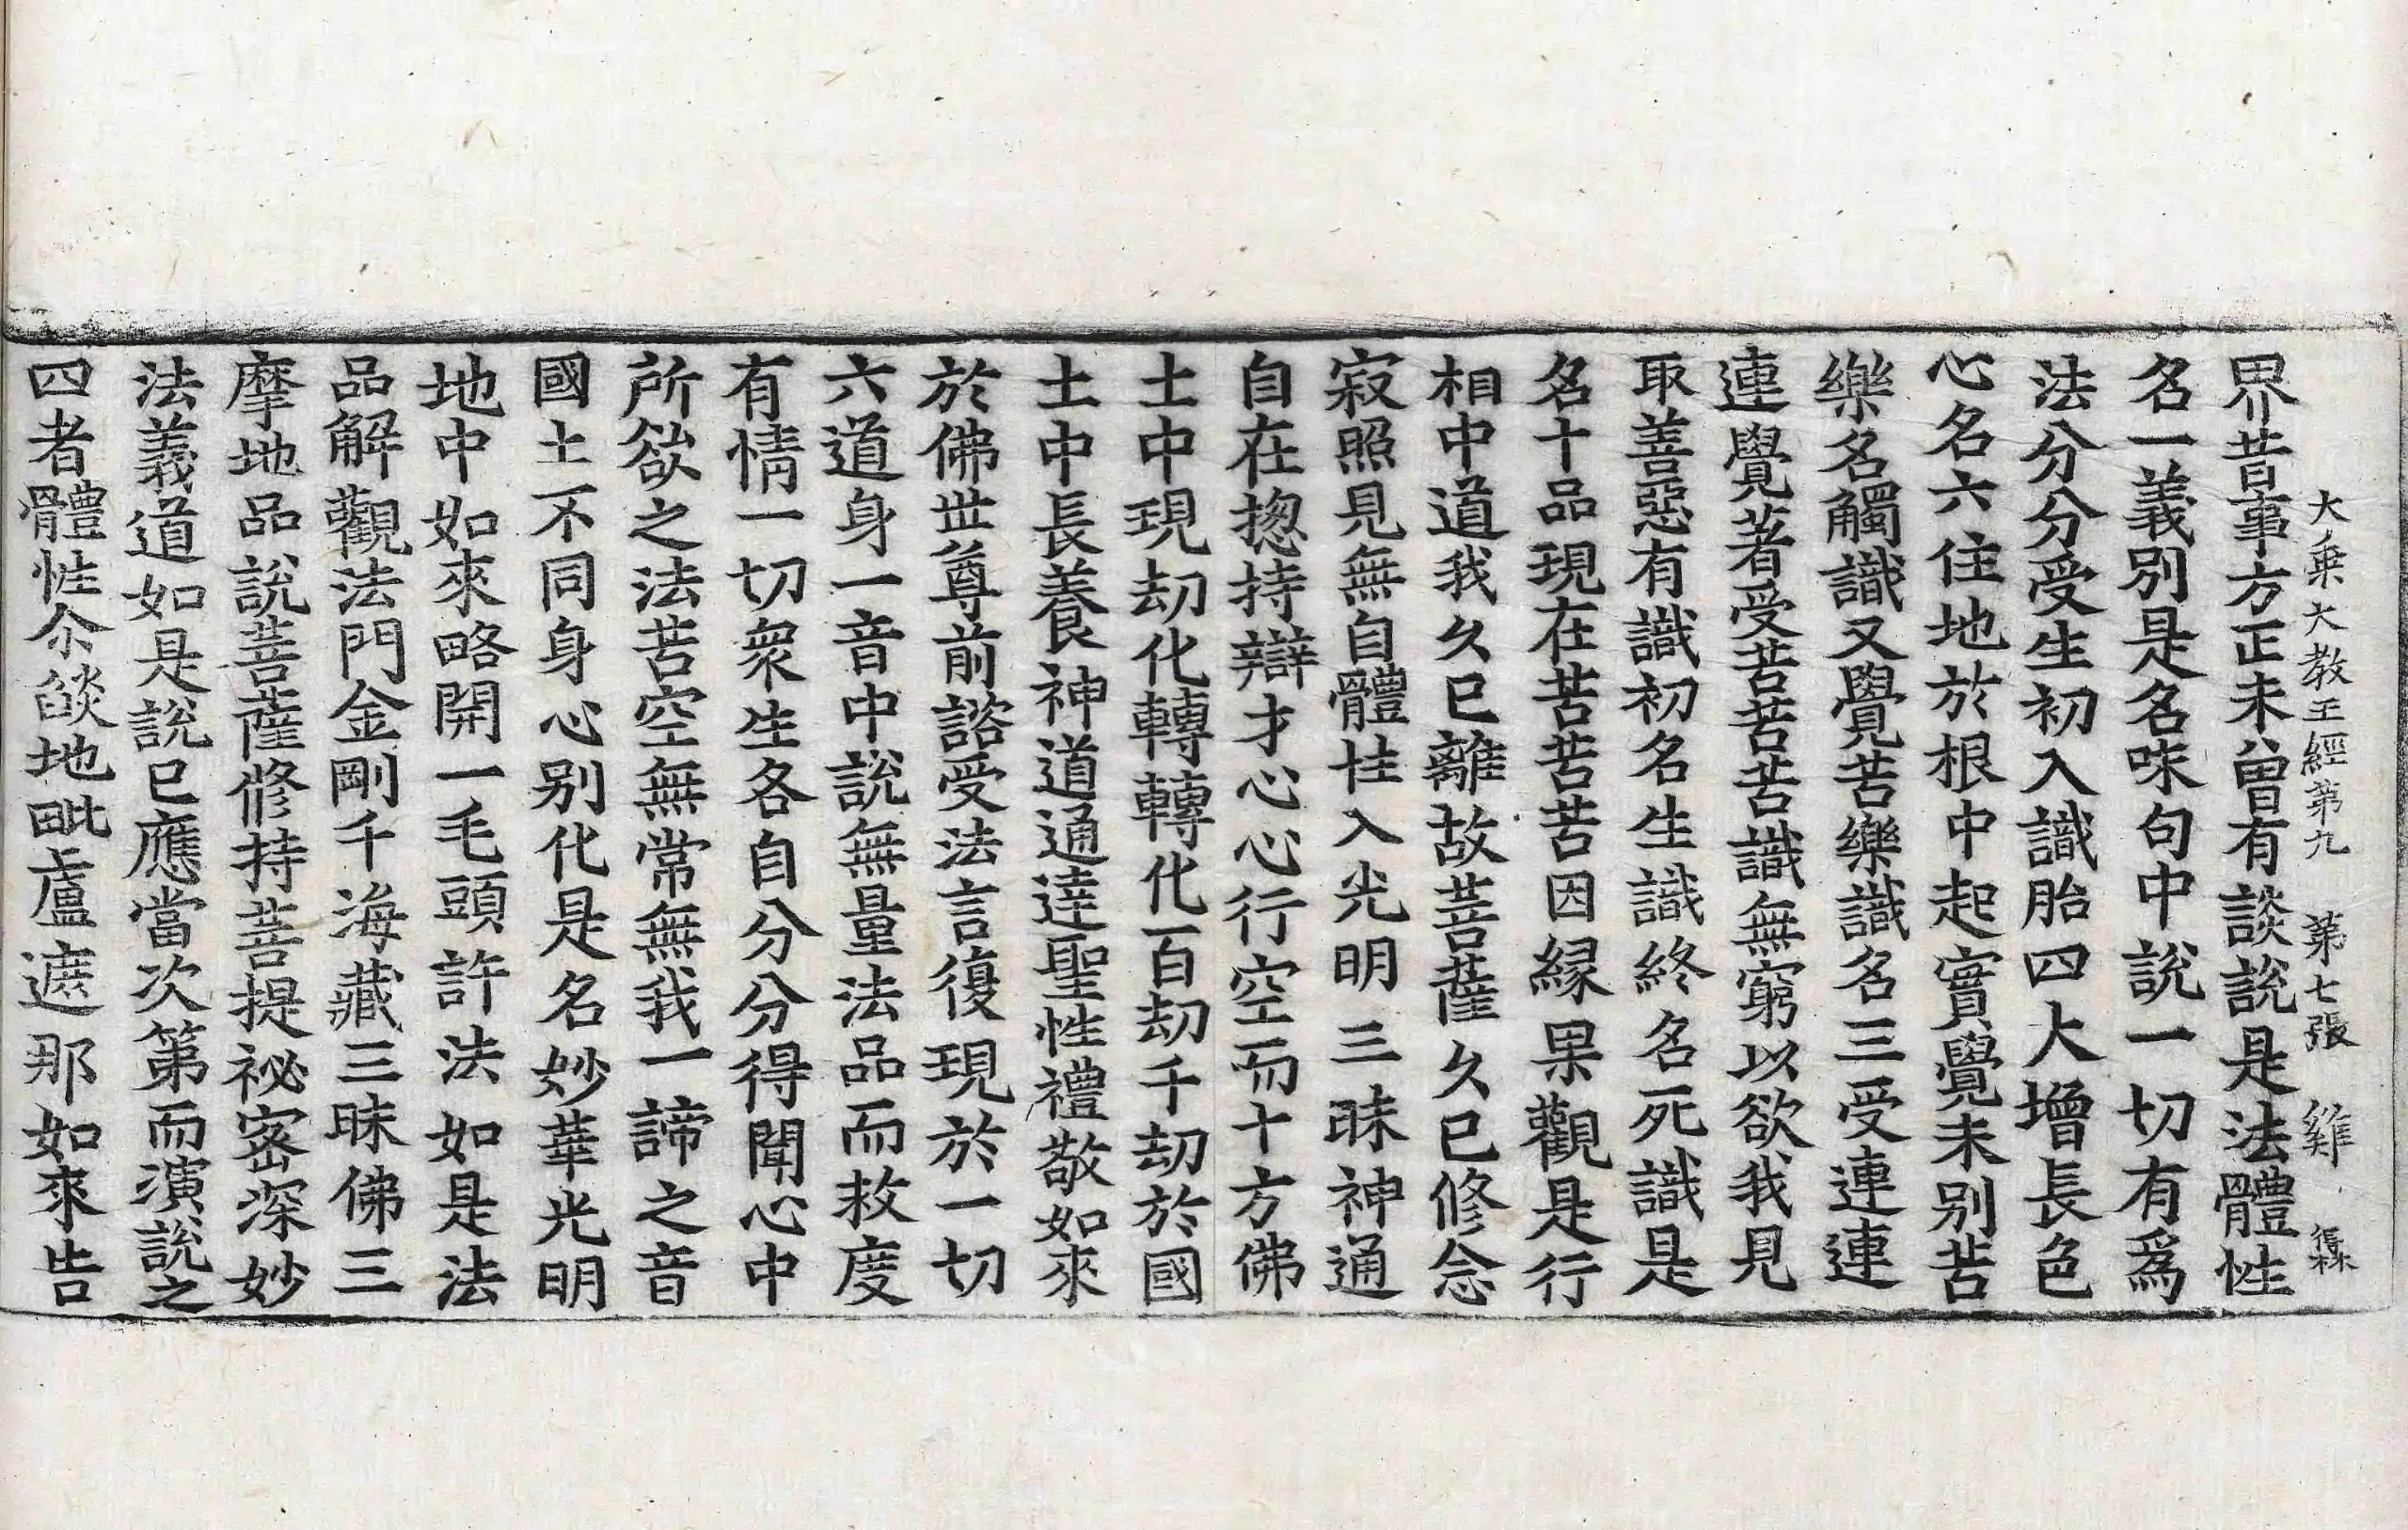 大乗大教王經第九 第七張 雞 

界昔事方正未曾有談說是法體性
名一義別是名味句中說一切有爲
法分分受生初入識胎四大增長色
心名六住地於根中起實覺未別苦
樂名觸識又覺苦樂識名三受連連
連覺著受苦苦苦識無窮以欲我見
取善惡有識初名生識終名死識是
名十品現在苦苦苦因縁果觀是行
相中道我久已離故菩薩久已修念
寂照見無自體性入光明三昧神通
自在揔持辯才心心行空而十方佛
土中現劫化轉轉化百劫千劫於國
土中長養神道通達聖性禮敬如來
於佛世尊前諮受法言復現於一切
六道身一音中說無量法品而救度
有情一切衆生各自分分得聞心中
所欲之法苦空無常無我一諦之音
國土不同身心別化是名妙華光明
地中如來略開一毛頭許法如是法
品解觀法門金剛千海藏三昧佛三
摩地品說菩薩修持菩提祕密深妙
法義道如是說已應當次第而演說之
四者體性尒燄地毗盧遮那如來告